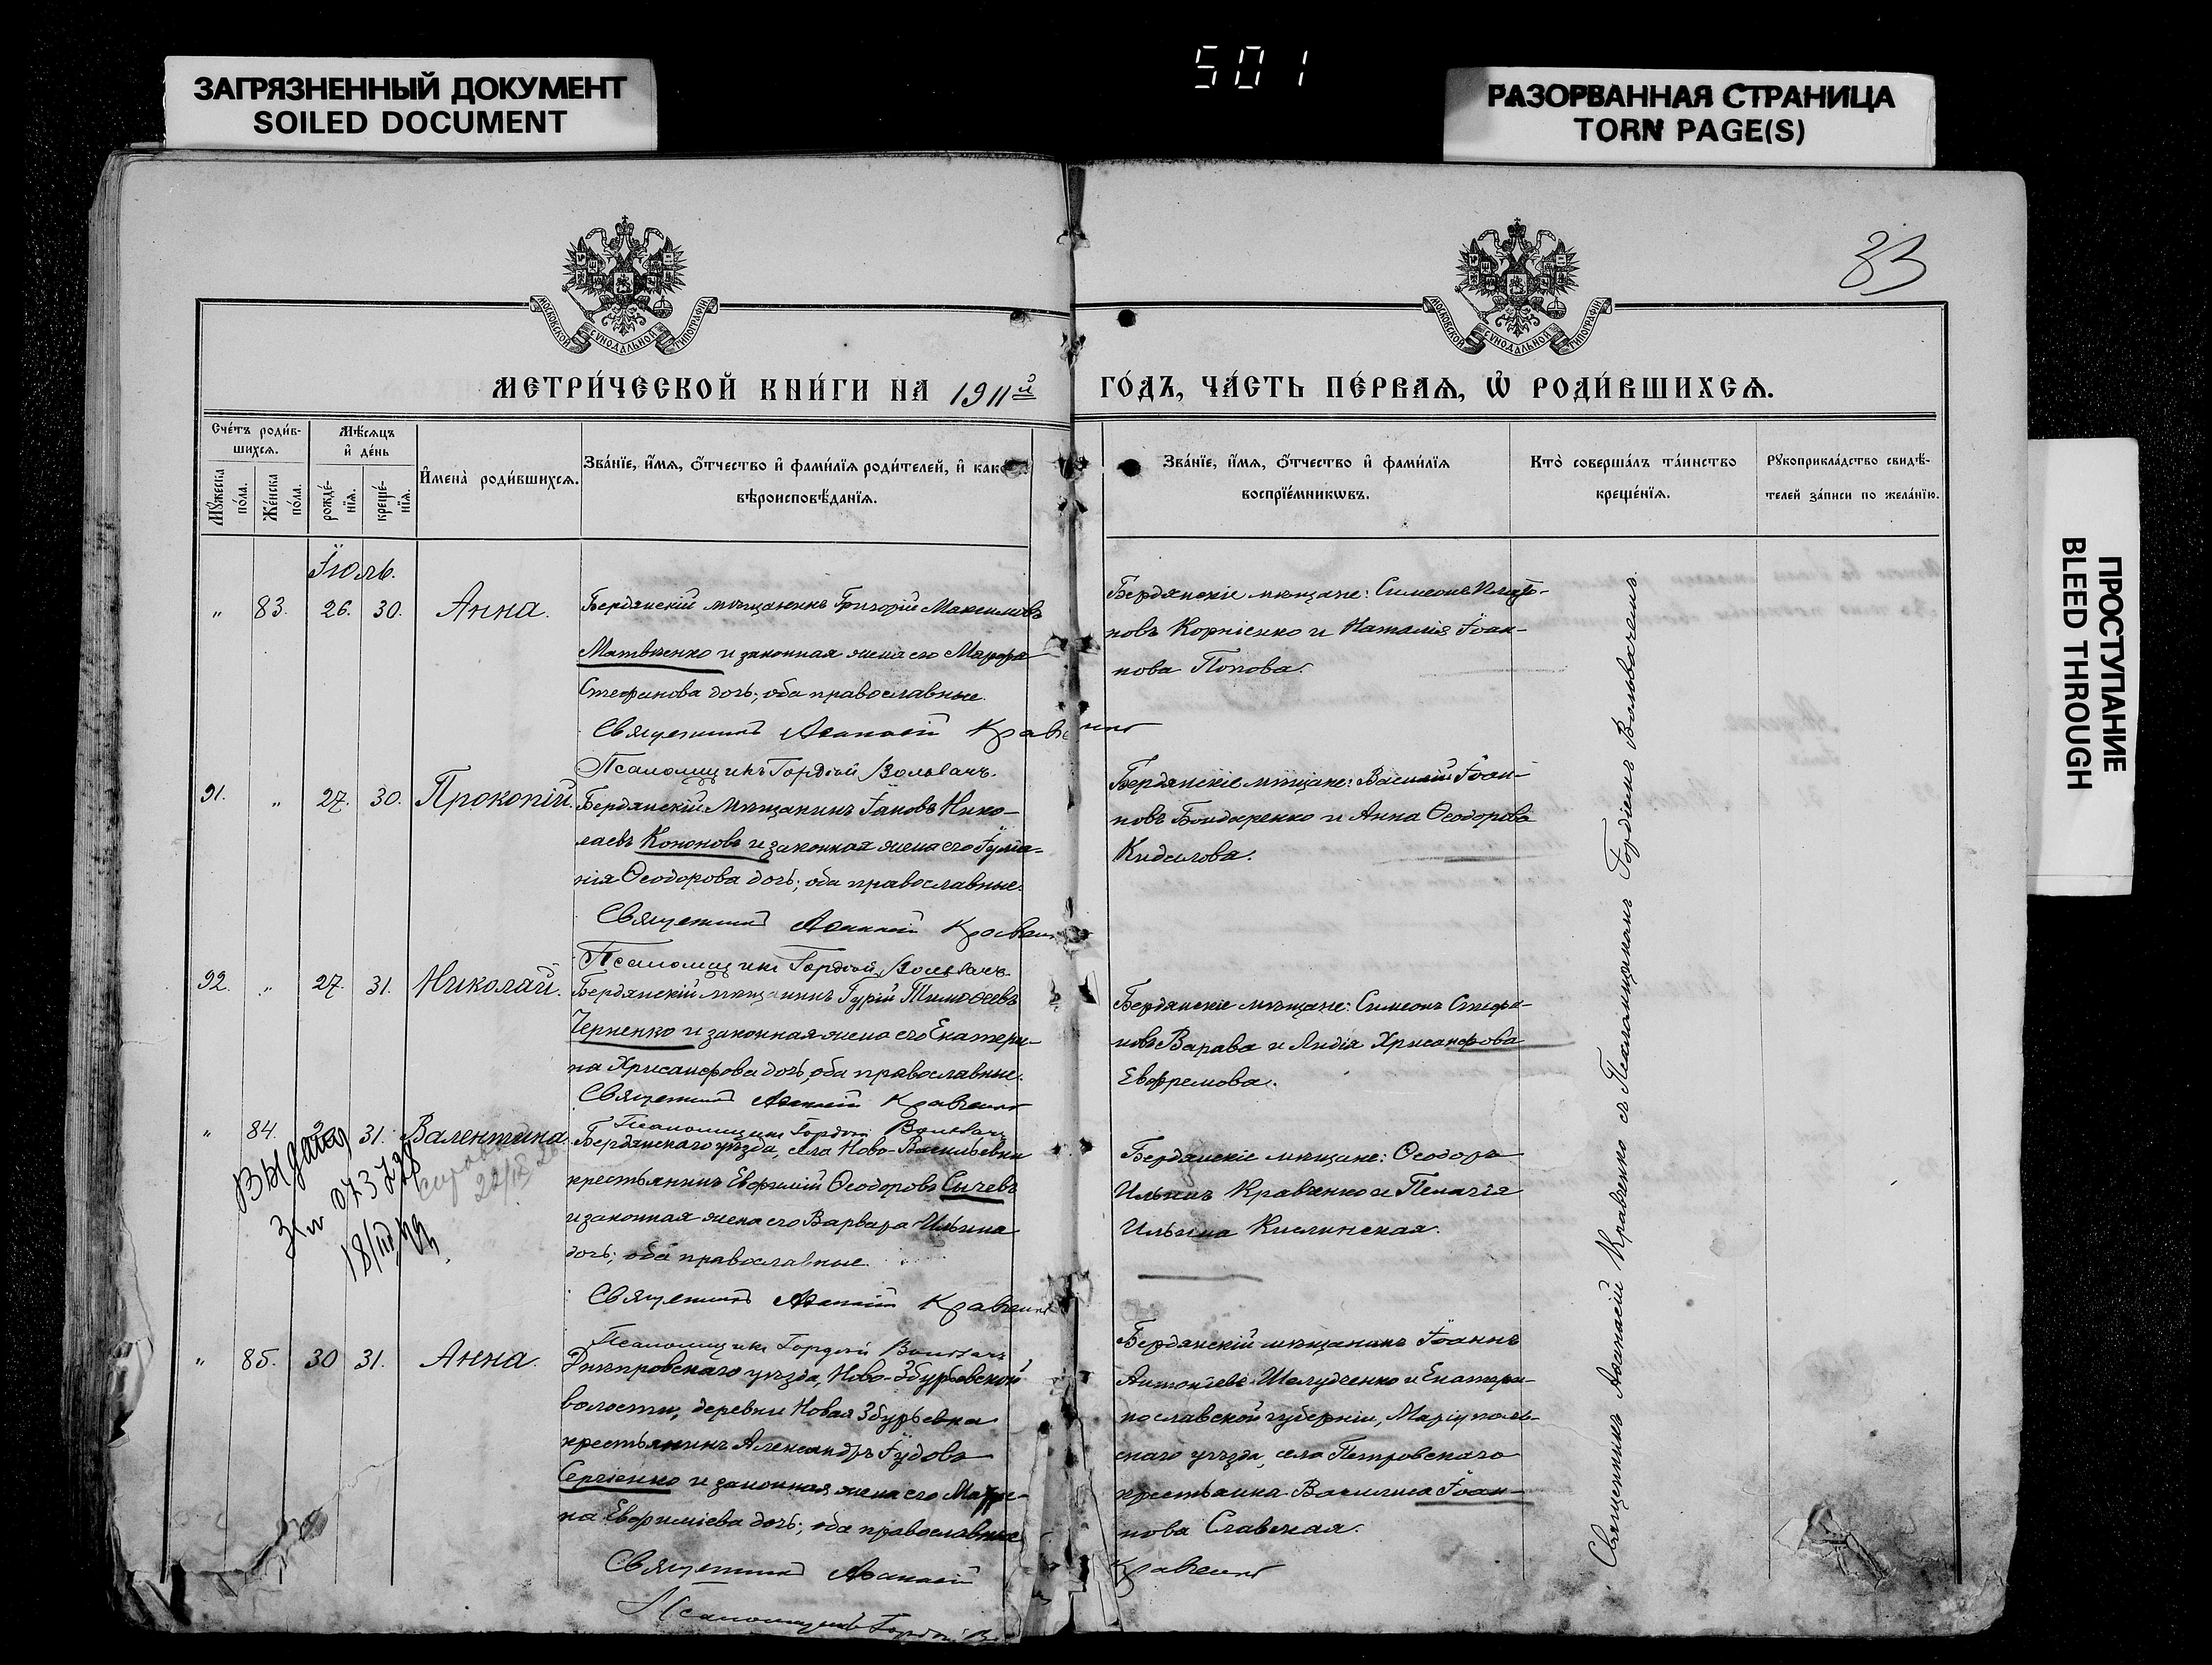 501
ЗАГРЯЗНЕННЫЙ ДОКУМЕНТ
SOILED DOCUMENT
РАЗОРВАННАЯ СТРАНИЦА
TORN PAGE(S)
ПРОСТУПАНИЕ
BLEED THROUGH
83
МОСКОВСКОЙ СѴНОДАЛЬНОЙ ТИПОГРАФІИ
МОСКОВСКОЙ СѴНОДАЛЬНОЙ ТИПОГРАФІИ
МЕТРИ́ЧЕСКОЙ КНИ́ГИ НА 1911й ГО́ДЪ, ЧА́СТЬ ПЕ́РВАѦ, Ѡ РОДИ́ВШИХСѦ.
Сче́тъ роди́в-
шихсѧ.
Мꙋ́жеска по́ла.
Же́нска по́ла.
Мѣ́сѧцъ
и҆ де́нь
рожде́-
нїѧ.
креще́-
нїѧ.
И҆мена̀ роди́вшихсѧ.
Зва́нїе, и҆́мѧ, ѻ҆́тчество и҆ фами́лїѧ роди́телей, и҆ како
вѣроисповѣ́данїѧ.
Зва́нїе, и҆́мѧ, ѻ҆́тчество и҆ фами́лїѧ
воспрїе́мникѡвъ.
Кто̀ соверша́лъ та́инство
креще́нїѧ.
Рꙋкоприкла́дство свидѣ́-
телей за́писи по жела́нїю.
Іюль.
" 83. 26. 30. Анна.
Бердянскій мѣщанинъ Григорій Максимовъ
Матвѣенко и законная жена его Марфа
Стефанова дочь; оба православные.
Священникъ Аѳанасій Кравченко
Псаломщикъ Гордій Вольвачъ.
Бердянскіе мѣщане: Симеонъ Плато-
новъ Корніенко и Наталія Іоан-
нова Попова.
91. " 27. 30. Прокопій.
Бердянскій мѣщанинъ Іаковъ Нико-
лаевъ Кононовъ и законная жена его Іулiа-
нія Ѳеодорова дочь; оба православные.
Священникъ Аѳанасій Кравченко
Псаломщикъ Гордій Вольвачъ.
Бердянскіе мѣщане: Василій Іоан-
новъ Бондаренко и Анна Ѳеодорова
Кидалова.
92. " 27. 31. Николай.
Бердянскій мѣщанинъ Гурій Тимоѳеевъ
Черненко и законная жена его Екатери-
на Хрисанфова дочь, оба православные.
Священникъ Аѳанасій Кравченко
Псаломщикъ Гордій Вольвачъ
Бердянскіе мѣщане: Симеонъ Стефа-
новъ Варава и Лидія Хрисанфова
Евфремова.
" 84. 31. Валентина.
Выдана
18/III
22/IX
Бердянскаго уѣзда, села Ново-Васильевки
крестьянинъ Евфимій Ѳеодоровъ Сычевъ
и законная жена его Варвара Ильина
дочь; оба православные.
Священникъ Аѳанасій Кравченко
Псаломщикъ Гордій Вольвачъ
Бердянскіе мѣщане: Ѳеодоръ
Ильинъ Кравченко и Пелагія
Ильина Кислинская.
" 85. 30 31. Анна.
Днѣпровскаго уѣзда, Ново-Збурьевской
волости, деревни Новая Збурьевка
крестьянинъ Александръ Іудовъ
Сергіенко и законная жена его Матро-
на Евфиміева дочь; оба православные
Священникъ Аѳанасій Кравченко
Псаломщикъ Гордій
Бердянскій мѣщанинъ Іоаннъ
Антоніевъ Шелудченко и Екатери-
нославской губерніи, Маріуполь-
скаго уѣзда, села Петровскаго
крестьянка Василиса Іоан-
нова Славская.
Священникъ Аѳанасій Кравченко съ Псаломщикомъ Гордіемъ Вольвачемъ.